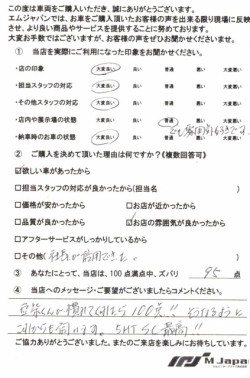 この度は車両をご購入いただき、誠にありがとうございます。
エムジャパンでは、お車をご購入頂いたお客様の声を出来る限り現場に反映
させ、より良い商品やサービスを提供することに努めております。
大変お手数ではございますが、お客様の声をぜひお聞かせくださいませ。
① 当店を実際にご利用になった印象をお聞かせください。
・店の印象 大変良い 良い 普通 悪い 大変悪い
・担当スタッフの対応 大変良い 良い 普通 悪い 大変悪い
・その他スタッフの対応 大変良い 良い 普通 悪い 大変悪い
・店内や展示場の状態 大変良い 良い 普通 悪い 大変悪い
・納車時のお車の状態 大変良い 良い 普通 悪い 大変悪い
② ご購入を決めて頂いた理由は何ですか?《複数回答可》
☑欲しい車があったから
□担当スタッフの対応が良かったから(担当名 )
□価格が安かったから □お店が近かったから
□品質が良かったから ☑お店の雰囲気が良かったから
□アフターサービスがしっかりしているから
□その他(
③ あなたにとって、当店は、100点満点中、ズバリ 95 点
④ 当店へのメッセージ・ご要望がございましたらコメントください。
100点!!
これからも
SL 最高!!
ご協力ありがとうございました。またのご来店を楽しみにお待ちしています。
M Japan